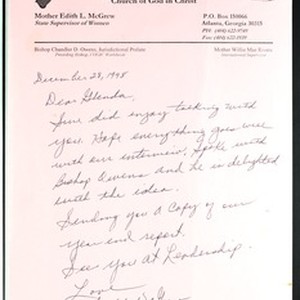 Church of God in Christ
Mother Edith L. McGrew
State Supervisor of Women
P.O. Box 150066
Atlanta, Georgia 30315
Bishop Chandler D. Owens, Jurisdictional Prelate
Mother Willie Mae Rivers
December 28, 1998
Dear Glenda,
Sure did enjoy talking with
you. Hope everything goes well
with our interview, Spoke with
Bishop Owens and he is delighted
with the idea.
Sending you a copy of our
year end report.
See you at Leadership.
Love